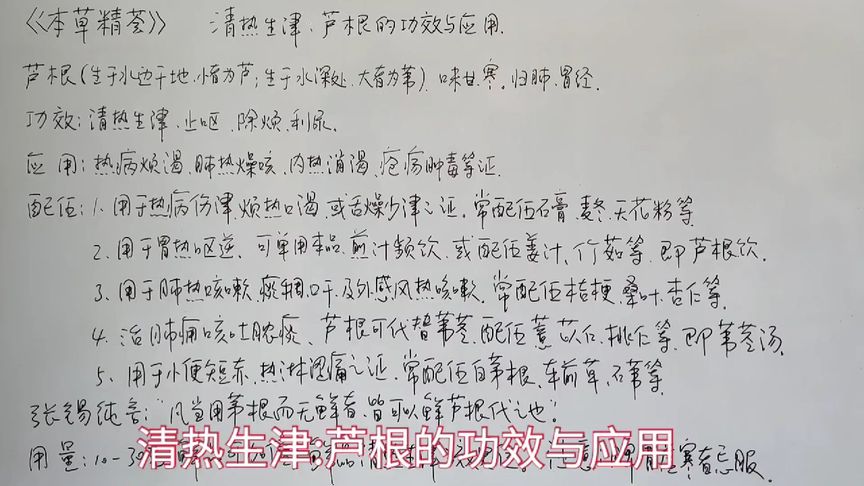 《本草精荟》 清热生津,芦根的功效与应用.
芦根(生于水边干地,小者为芦;生于水深处,大者为苇). 味甘.寒. 归肺.胃经.
功效:清热生津.止呕.除烦.利尿.
应用:热病烦渴.肺热燥咳.内热消渴.疮疡肿毒等证.
配伍:1.用于热病伤津.烦热口渴.或舌燥少津之证.常配伍石膏.麦冬.天花粉等.
2.用于胃热呕逆.可单用本品.煎汁频饮.或配伍姜汁.竹茹等.即芦根饮.
3.用于肺热咳嗽.痰稠.口干.及外感风热咳嗽.常配伍桔梗.桑叶.杏仁等.
4.治肺痈咳吐脓痰.芦根可代替苇茎.配伍薏苡仁.桃仁等.即苇茎汤.
5.用于小便短赤.热淋涩痛之证.常配伍白茅根.车前草.石苇等.
张锡纯言:"凡当用茅根而无鲜者.皆可以鲜芦根代之也".
用量:10-30 寒者忌服.
清热生津,芦根的功效与应用